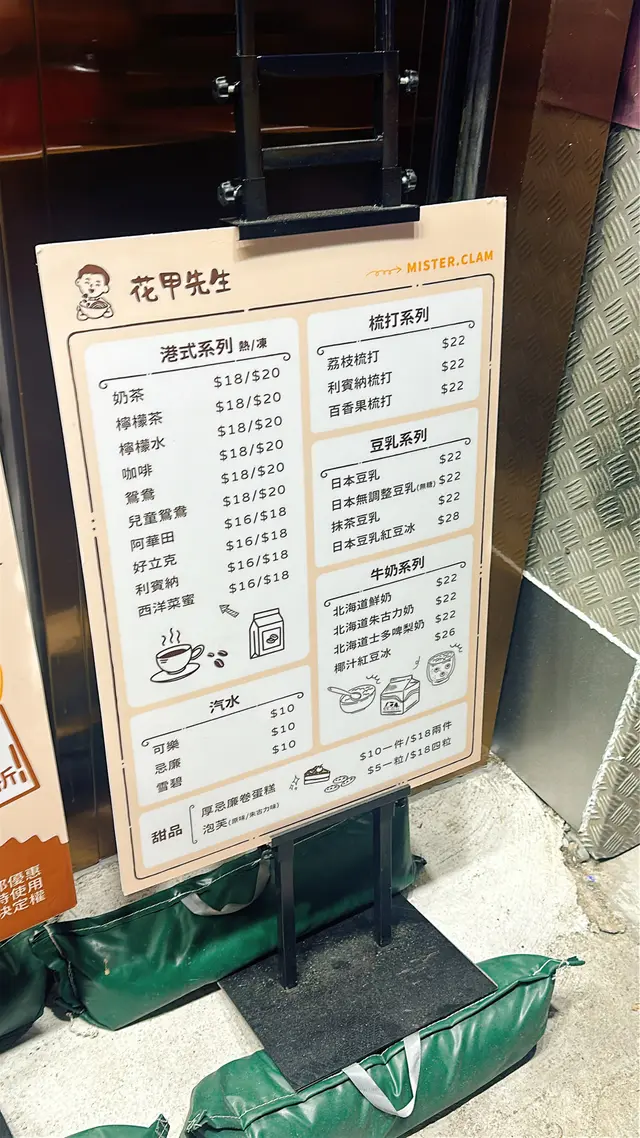 花甲先生
MISTER.CLAM
港式系列 熱/凍
奶茶 $18/$20
檸檬茶 $18/$20
檸檬水 $18/$20
咖啡 $18/$20
鴛鴦 $18/$20
兒童鴛鴦 $18/$20
阿華田 $16/$18
好立克 $16/$18
利賓納 $16/$18
西洋菜蜜 $16/$18
汽水
可樂 $10
忌廉 $10
雪碧 $10
梳打系列
荔枝梳打 $22
利賓納梳打 $22
百香果梳打 $22
豆乳系列
日本豆乳 $22
日本無調整豆乳(無糖) $22
抹茶豆乳 $22
日本豆乳紅豆冰 $28
牛奶系列
北海道鮮奶 $22
北海道朱古力奶 $22
北海道士多啤梨奶 $22
椰汁紅豆冰 $26
甜品
厚忌廉卷蛋糕 $10一件/$18兩件
泡芙(原味/朱古力味) $5一粒/$18四粒
折
優惠
時使用
決定權